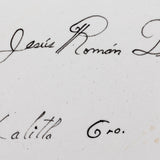 Jesús Román
Lalitla Gro.